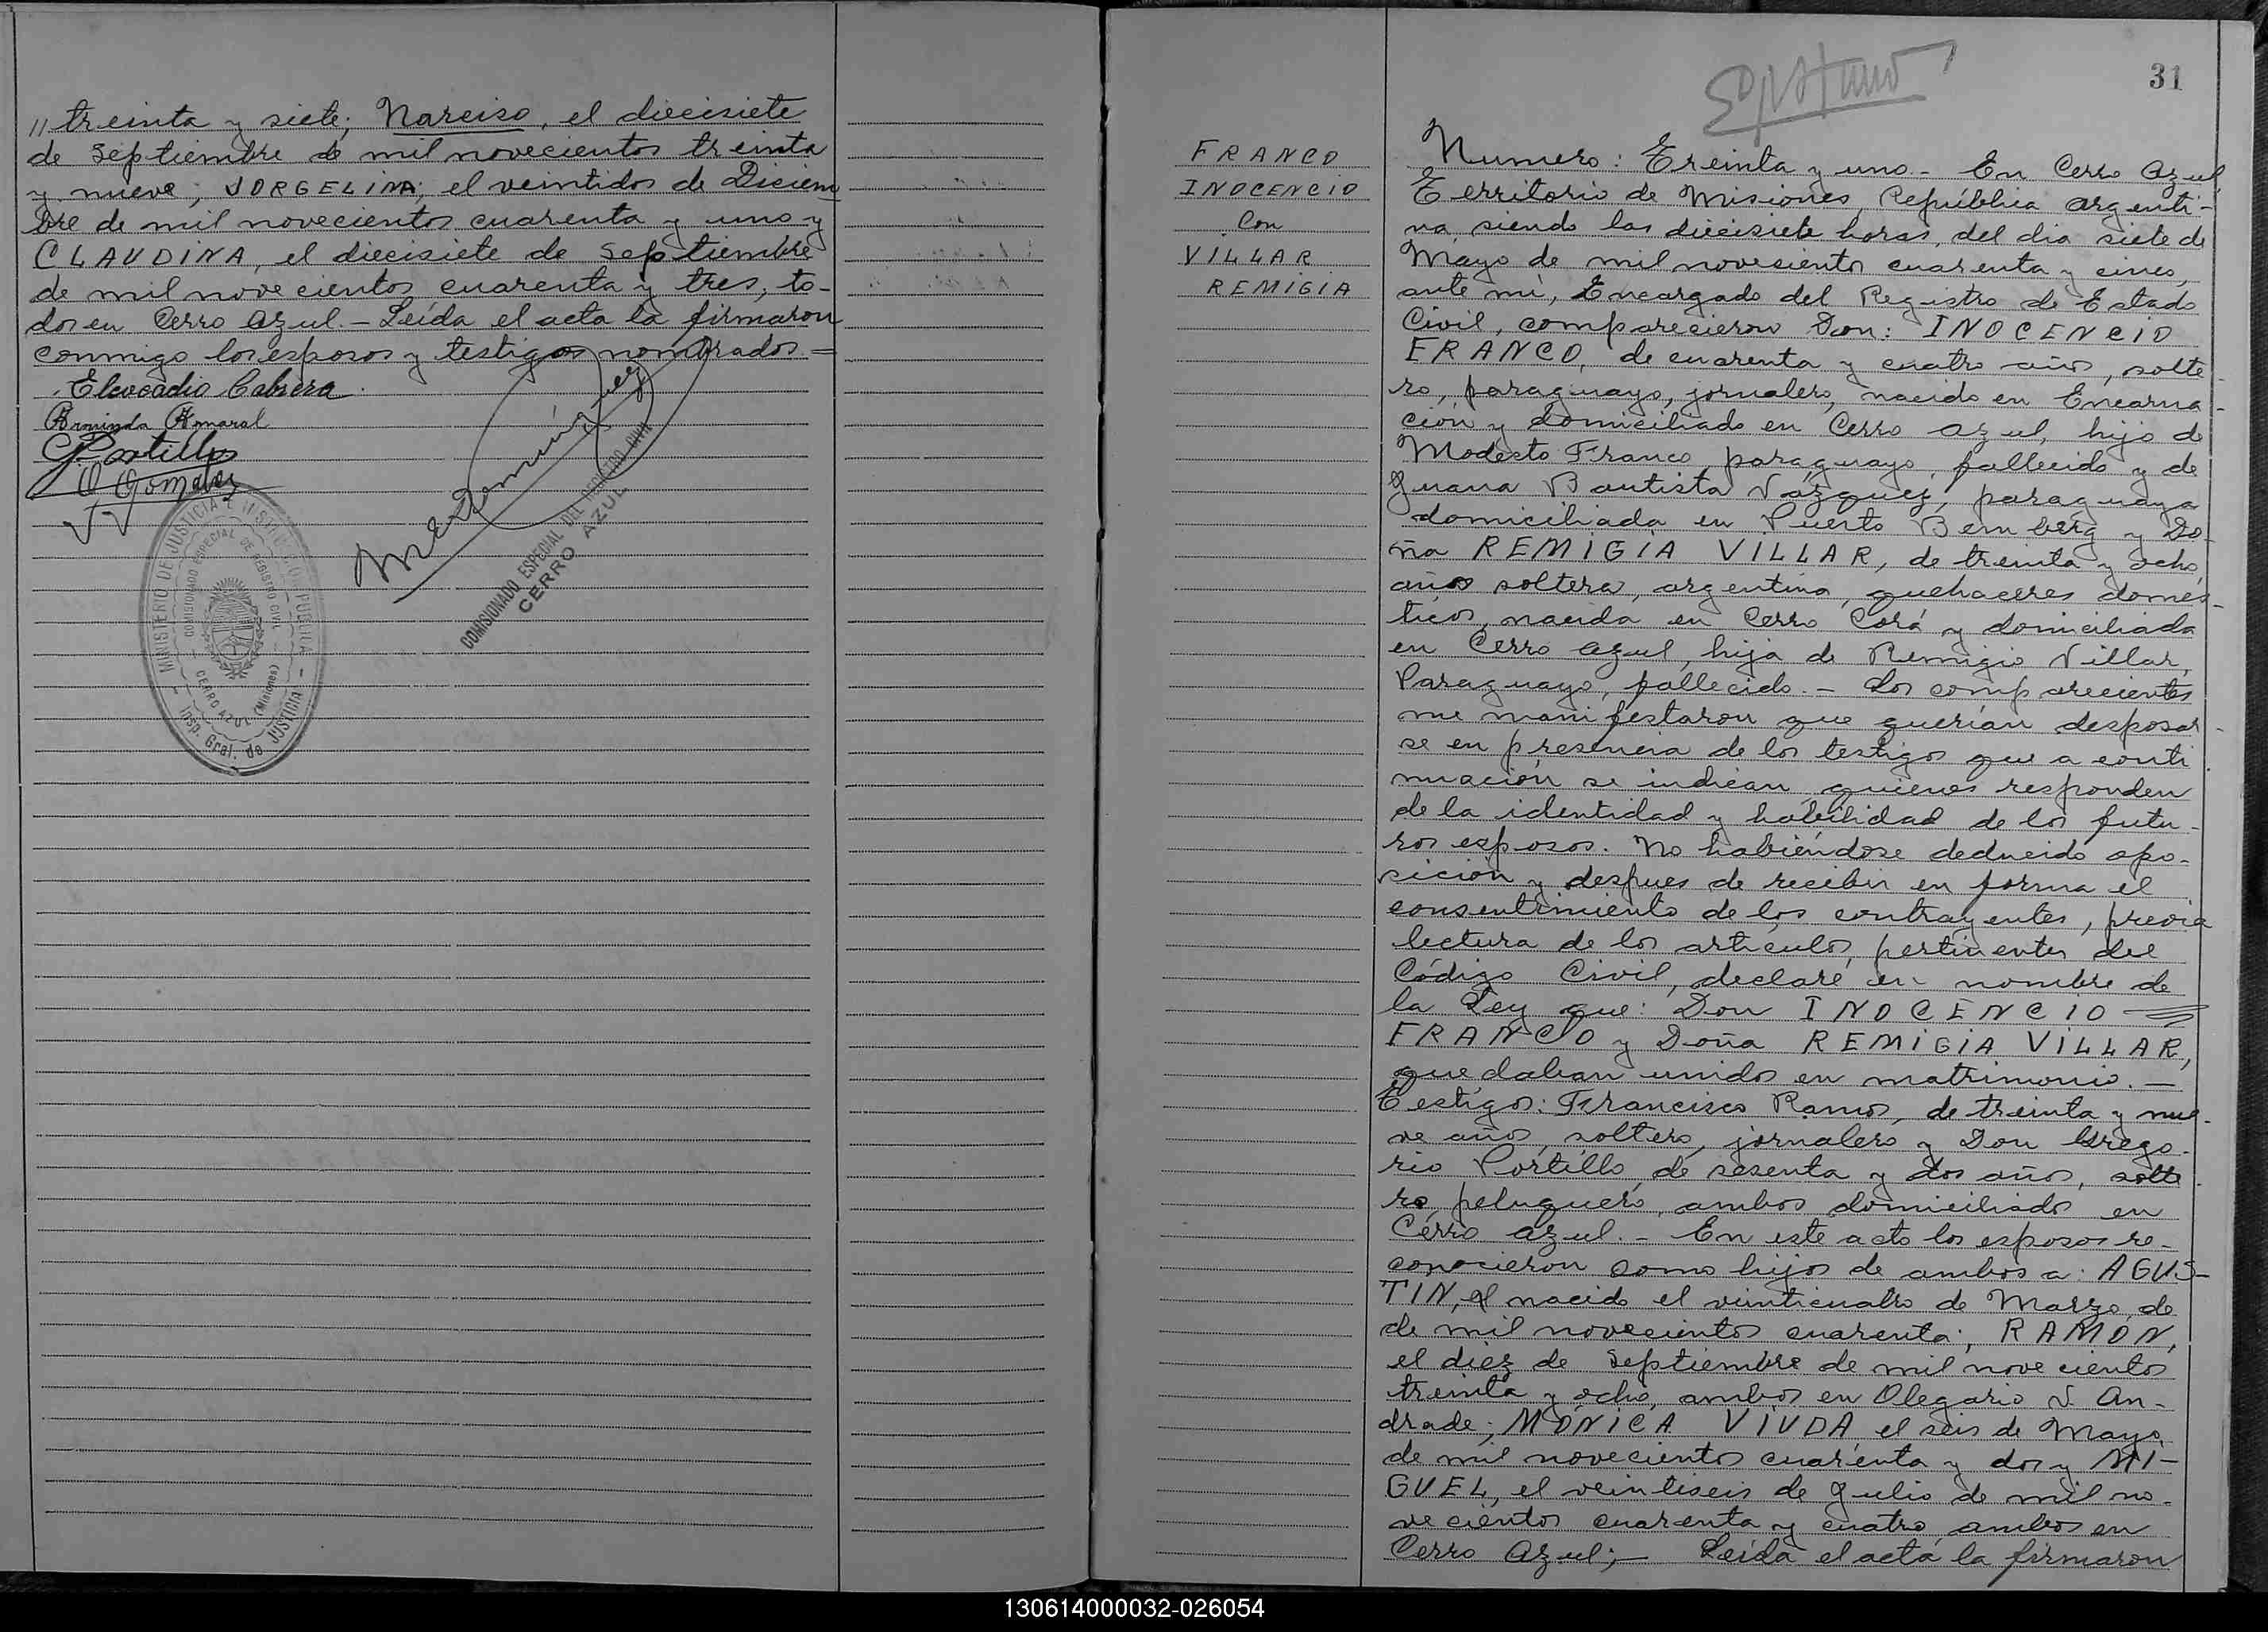 // treinta y siete; Narciso, el diecisiete
de Septiembre de mil novecientos treinta
y nueve; JORGELINA; el veintidos de Diciem
bre de mil novecientos cuarenta y uno y
CLAUDINA, el diecisiete de Septiembre
de mil novecientos cuarenta y tres, to-
dos en Cerro Azul.- Leída el acta la firmaron
conmigo los esposos y testigos nombrados.=
Eleocadio Cabrera
Arminda Amaral
G Portillo
O Gomalez
COMISIONADO ESPECIAL DEL REGISTRO CIVIL
CERRO AZUL
MINISTERIO DE JUSTICIA E INSTRUCCION PUBLICA
COMISIONADO ESPECIAL DE REGISTRO CIVIL
CERRO AZUL (Misiones)
Insp. Gral. de JUSTICIA
31
FRANCO
INOCENCIO
Con
VILLAR
REMIGIA
Numero: Treinta y uno.- En Cerro Azul
Territorio de Misiones, República Argenti-
na, siendo las diecisiete horas, del dia siete de
Mayo de mil novecientos cuarenta y cinco,
ante mi, Encargado del Registro de Estado
Civil, comparecieron Don: INOCENCIO
FRANCO, de cuarenta y cuatro años, solte-
ro, paraguayo, jornalero, nacido en Encarna-
ción y domiciliado en Cerro Azul, hijo de
Modesto Franco, paraguayo, fallecido y de
Juana Bautista Vázquez, paraguaya
domiciliada en Puerto Bemberg y Do-
ña REMIGIA VILLAR, de treinta y ocho
años soltera, argentina, quehaceres domés-
ticos, nacida en Cerro Corá y domiciliada
en Cerro Azul, hija de Remigio Villar,
Paraguayo, fallecido.- Los comparecientes
me manifestaron que querían desposar-
se en presencia de los testigos que a conti-
nuación se indican, quienes responden
de la identidad y habilidad de los futu-
ros esposos. No habiéndose deducido opo-
sición y despues de recibir en forma el
consentimiento de los contrayentes, previa
lectura de los artículos, pertinentes del
Código Civil, declaré en nombre de
la Ley que: Don INOCENCIO
FRANCO y Doña REMIGIA VILLAR,
quedaban unidos en matrimonio.-
Testigos: Francisco Ramos, de treinta y nue-
ve años, soltero, jornalero y Don Grego-
rio Portillo, de sesenta y dos años, solte-
ro, peluquero, ambos domiciliados en
Cerro Azul.- En este acto los esposos re-
conocieron como hijos de ambos a: AGUS-
TIN, el nacido el veinticuatro de Marzo de
de mil novecientos cuarenta; RAMÓN,
el diez de Septiembre de mil novecientos
treinta y ocho, ambos en Olegario V. An-
drade; MÓNICA VIUDA el seis de Mayo
de mil novecientos cuarenta y dos y MI-
GUEL, el veintiseis de Julio de mil no-
vecientos cuarenta y cuatro ambos en
Cerro Azul;- Leída el acta la firmaron
130614000032-026054